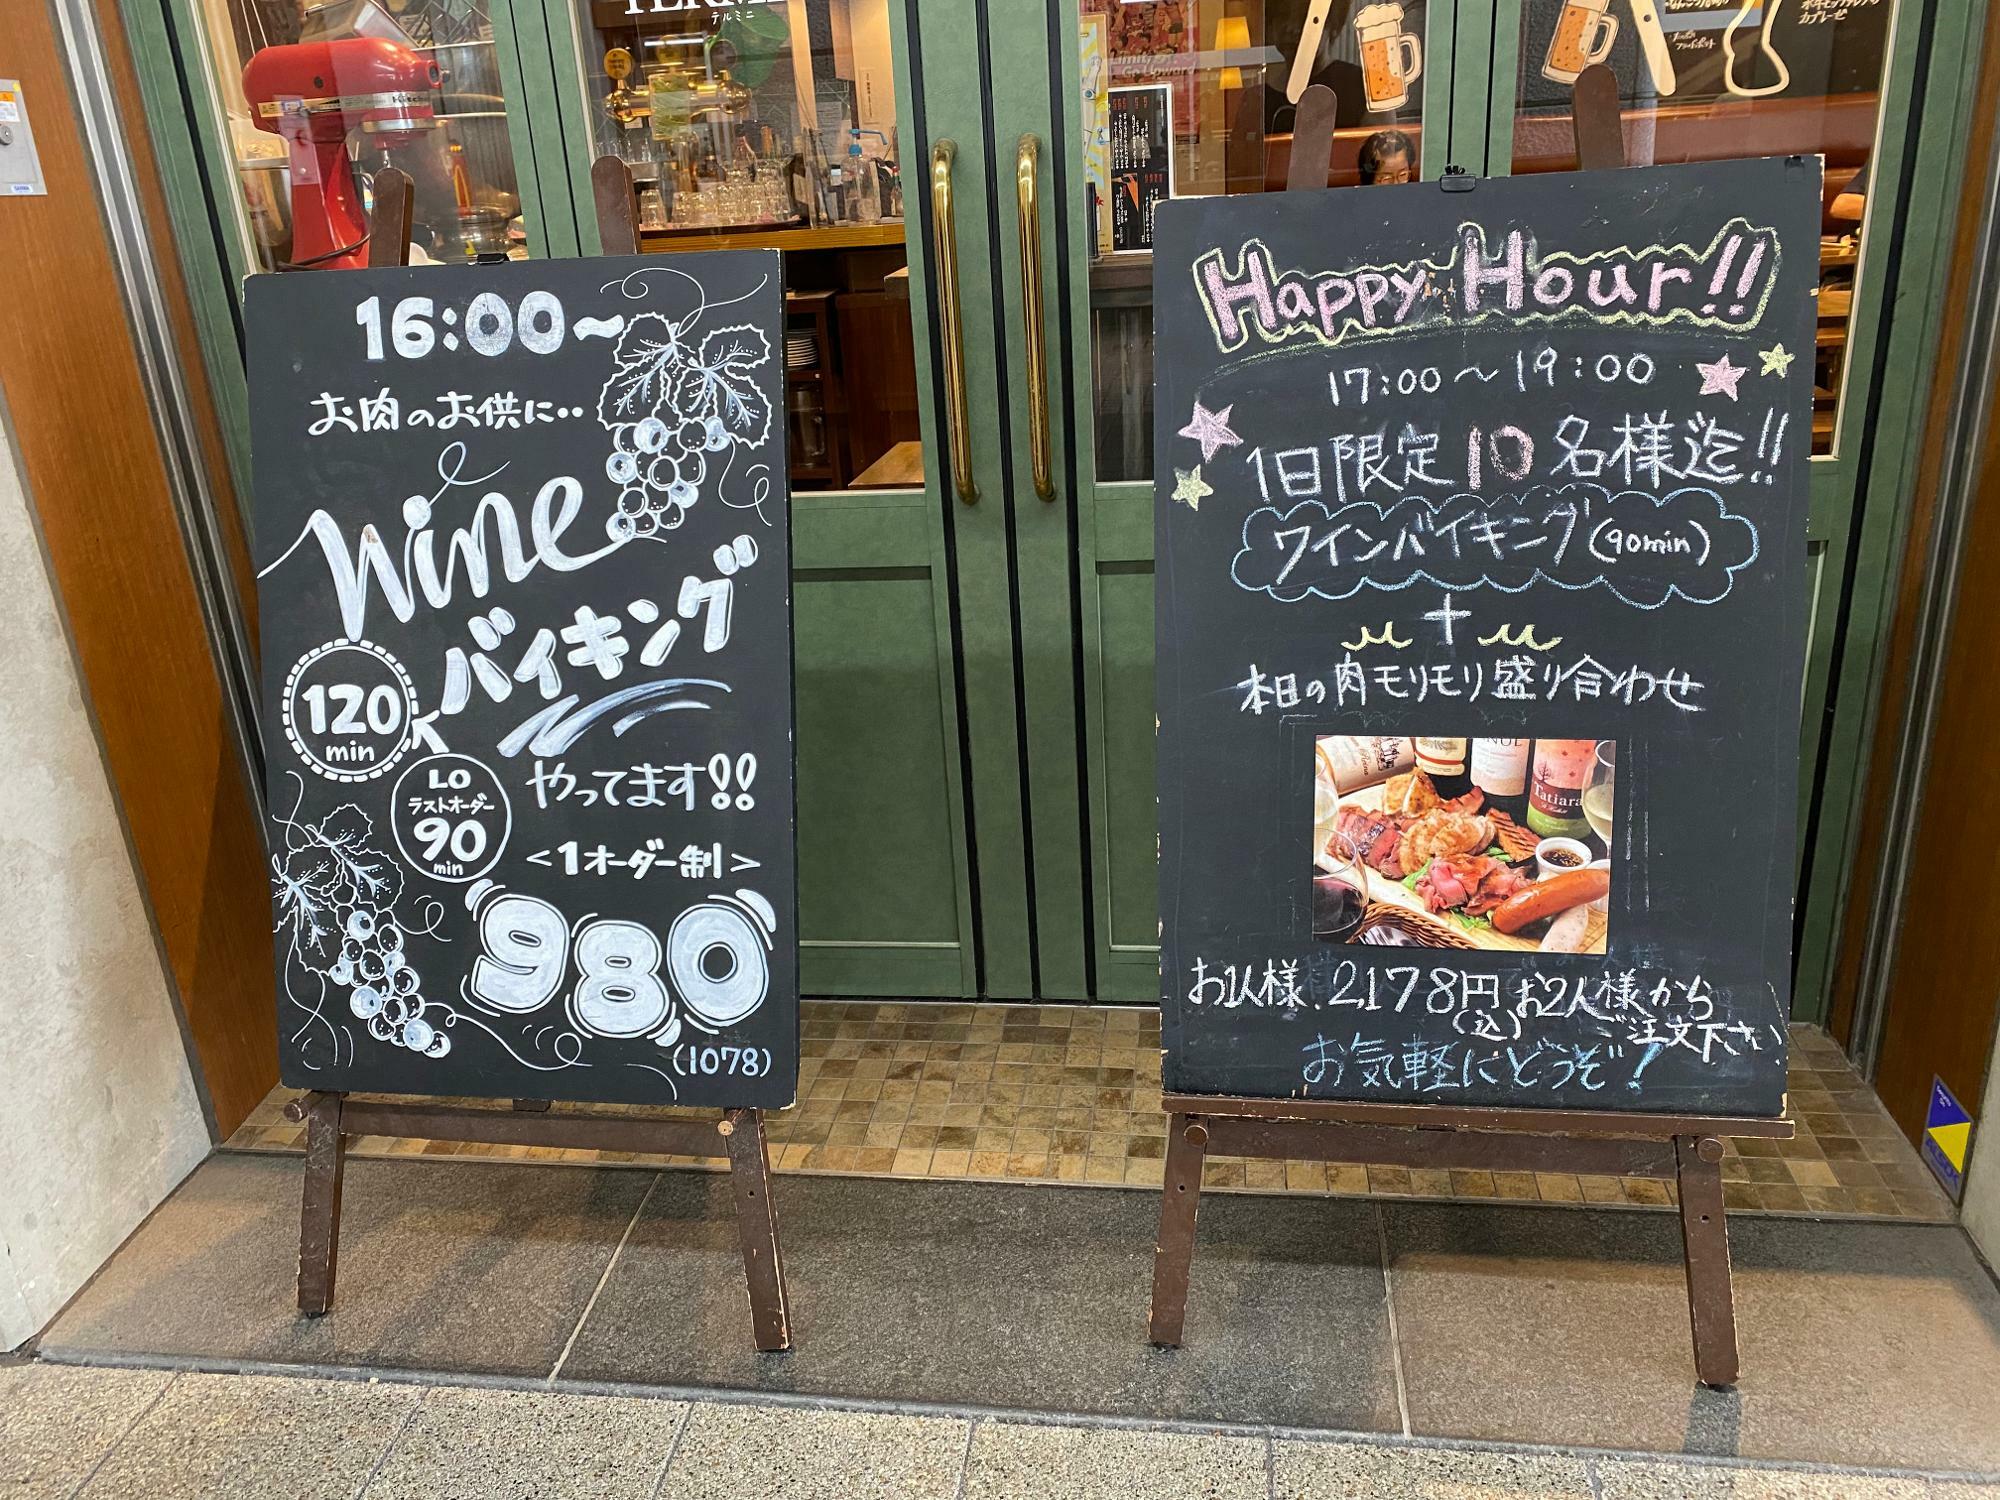 テルミニ
16:00〜
お肉のお供に・・
Wine
バイキング
120
min
LO
ラストオーダー
90
min
やってます!!
<1オーダー制>
980
(1078)
Happy Hour!!
17:00〜19:00
1日限定10名様迄!!
ワインバイキング(90min)
+
本日の肉モリモリ盛り合わせ
Tatiara
お1人様 2178円(込)
お2人様から
ご注文下さい
お気軽にどうぞ!